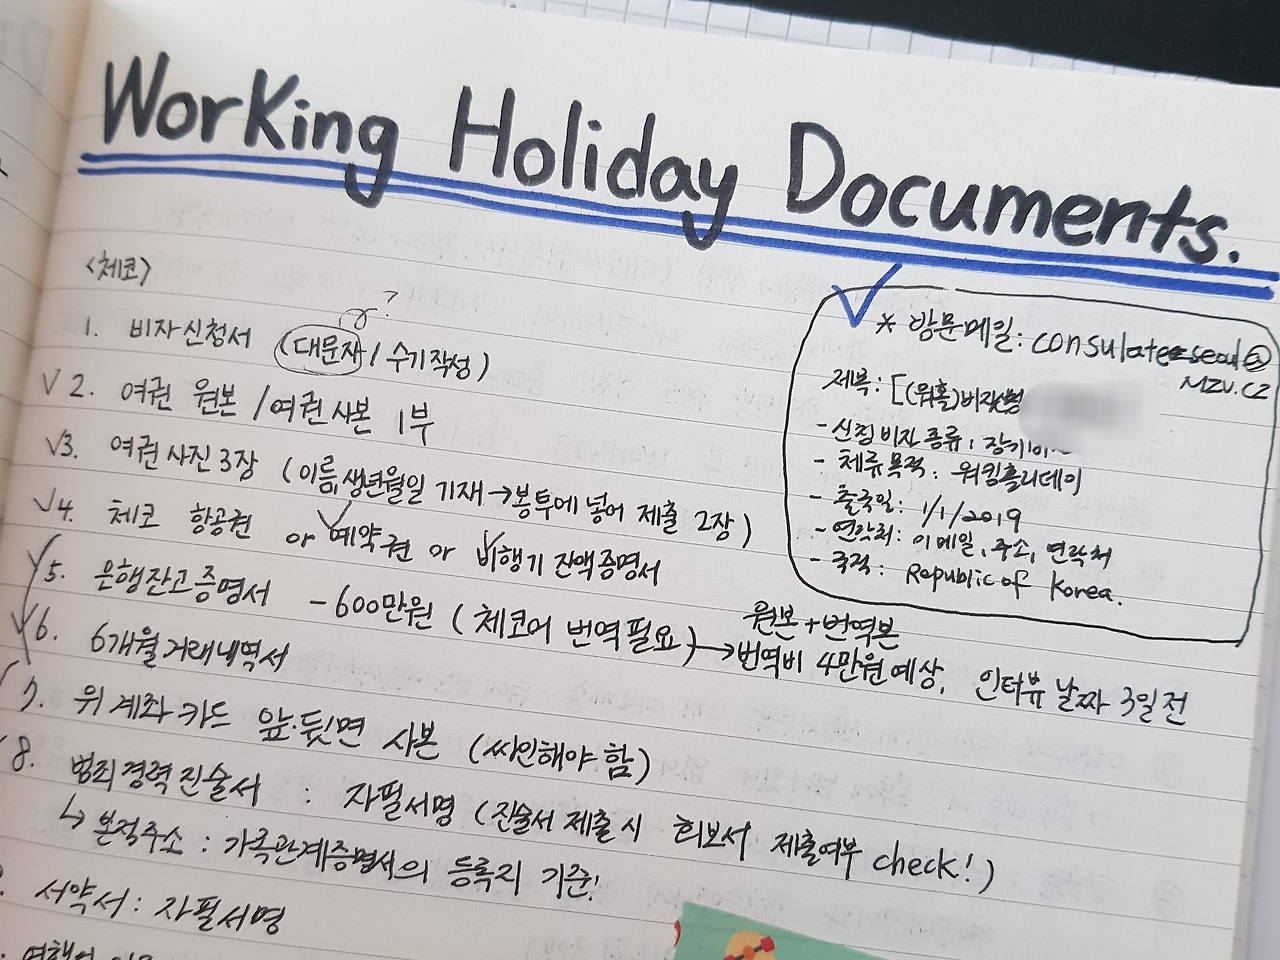 Working Holiday Documents.
<체코>
?
1. 비자신청서 (대문자 / 수기작성)
2. 여권 원본 / 여권사본 1부
3. 여권사진 3장 (이름, 생년월일 기재 → 봉투에 넣어 제출 2장)
4. 체코 항공권 or 예약권 or 비행기 잔액증명서
5. 은행잔고증명서 - 600만원 (체코어 번역필요) → 원본+번역본
번역비 4만원예상, 인터뷰 날짜 3일전
6. 6개월 거래내역서
7. 위 계좌 카드 앞·뒷면 사본 (싸인해야 함)
8. 범죄경력진술서 : 자필서명 (진술서 제출 시 회보서 제출여부 check!)
↳ 본적주소 : 가족관계증명서의 등록지 기준!
서약서 : 자필서명
* 방문메일: consulate-seoul@
MZV.CZ
제목: [(워홀)비자
- 신청비자 종류: 장기
- 체류목적: 워킹홀리데이
- 출국일: 1/1/2019
- 연락처: 이메일, 주소, 연락처
- 국적: Republic of Korea.